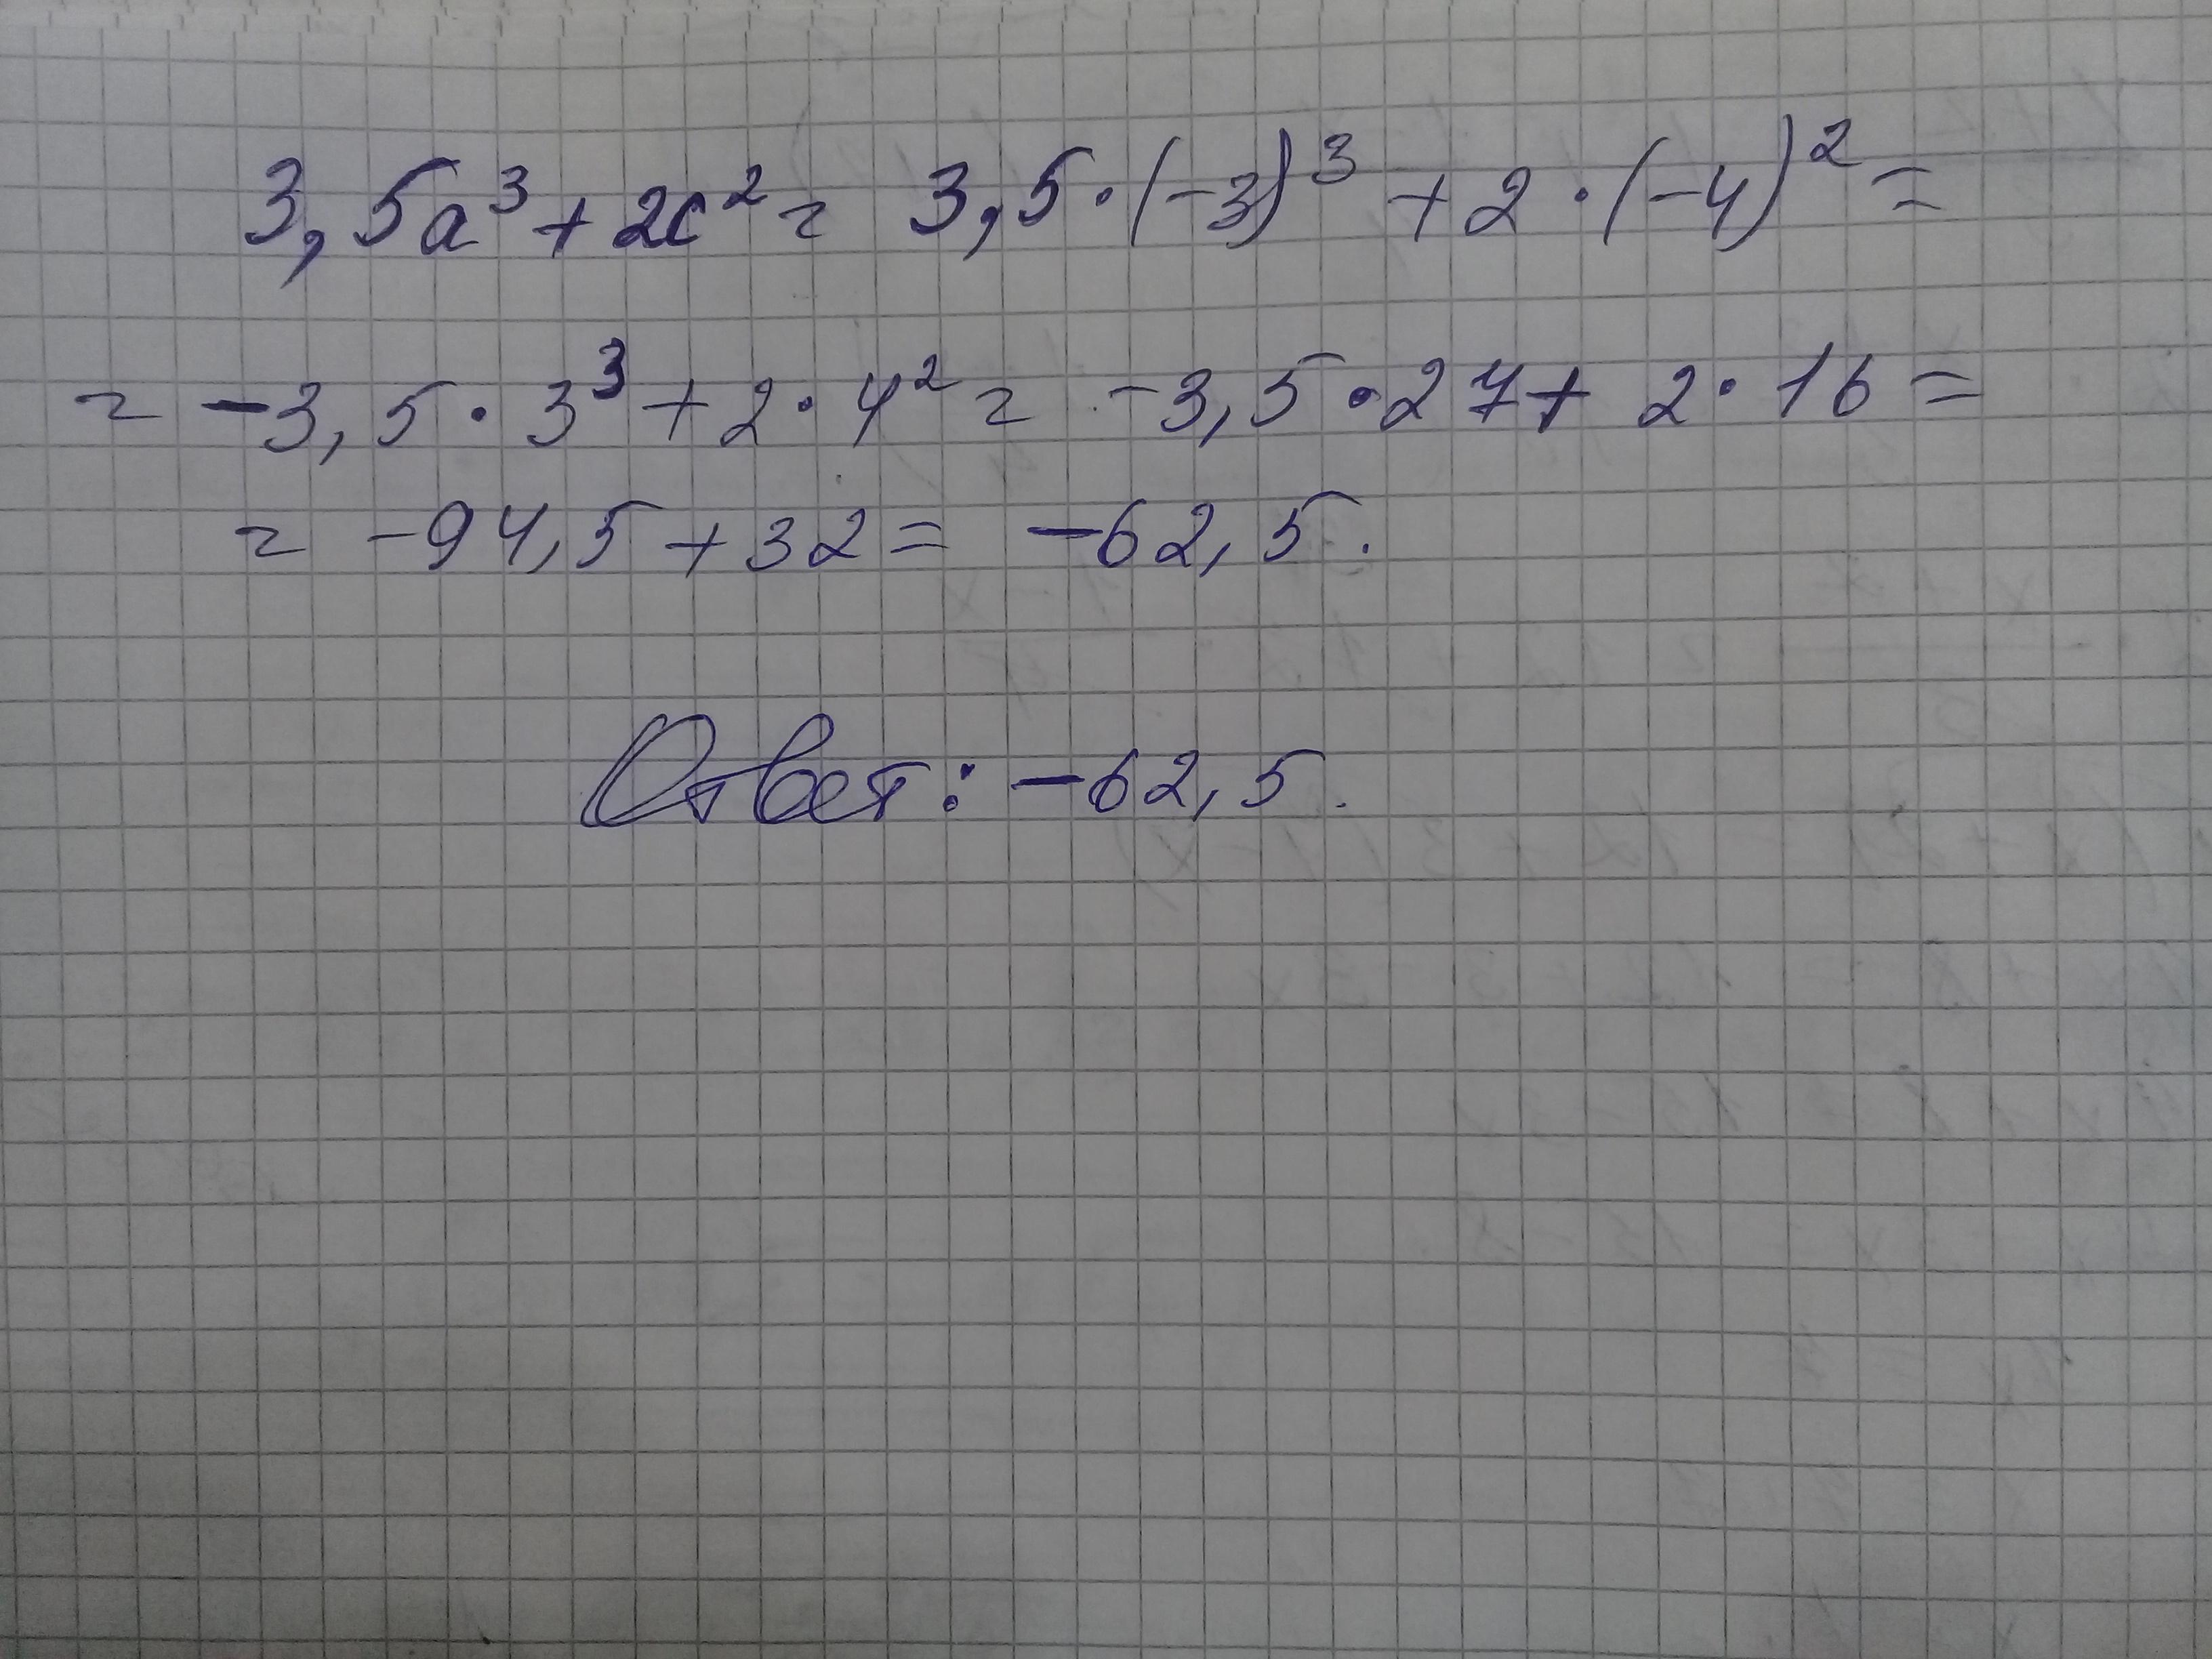 3,5a³+2c²= 3,5·(-3)³+2·(-4)²=
= -3,5·3³+2·4²= -3,5·27+2·16=
= -94,5+32= -62,5.
Ответ: -62,5.